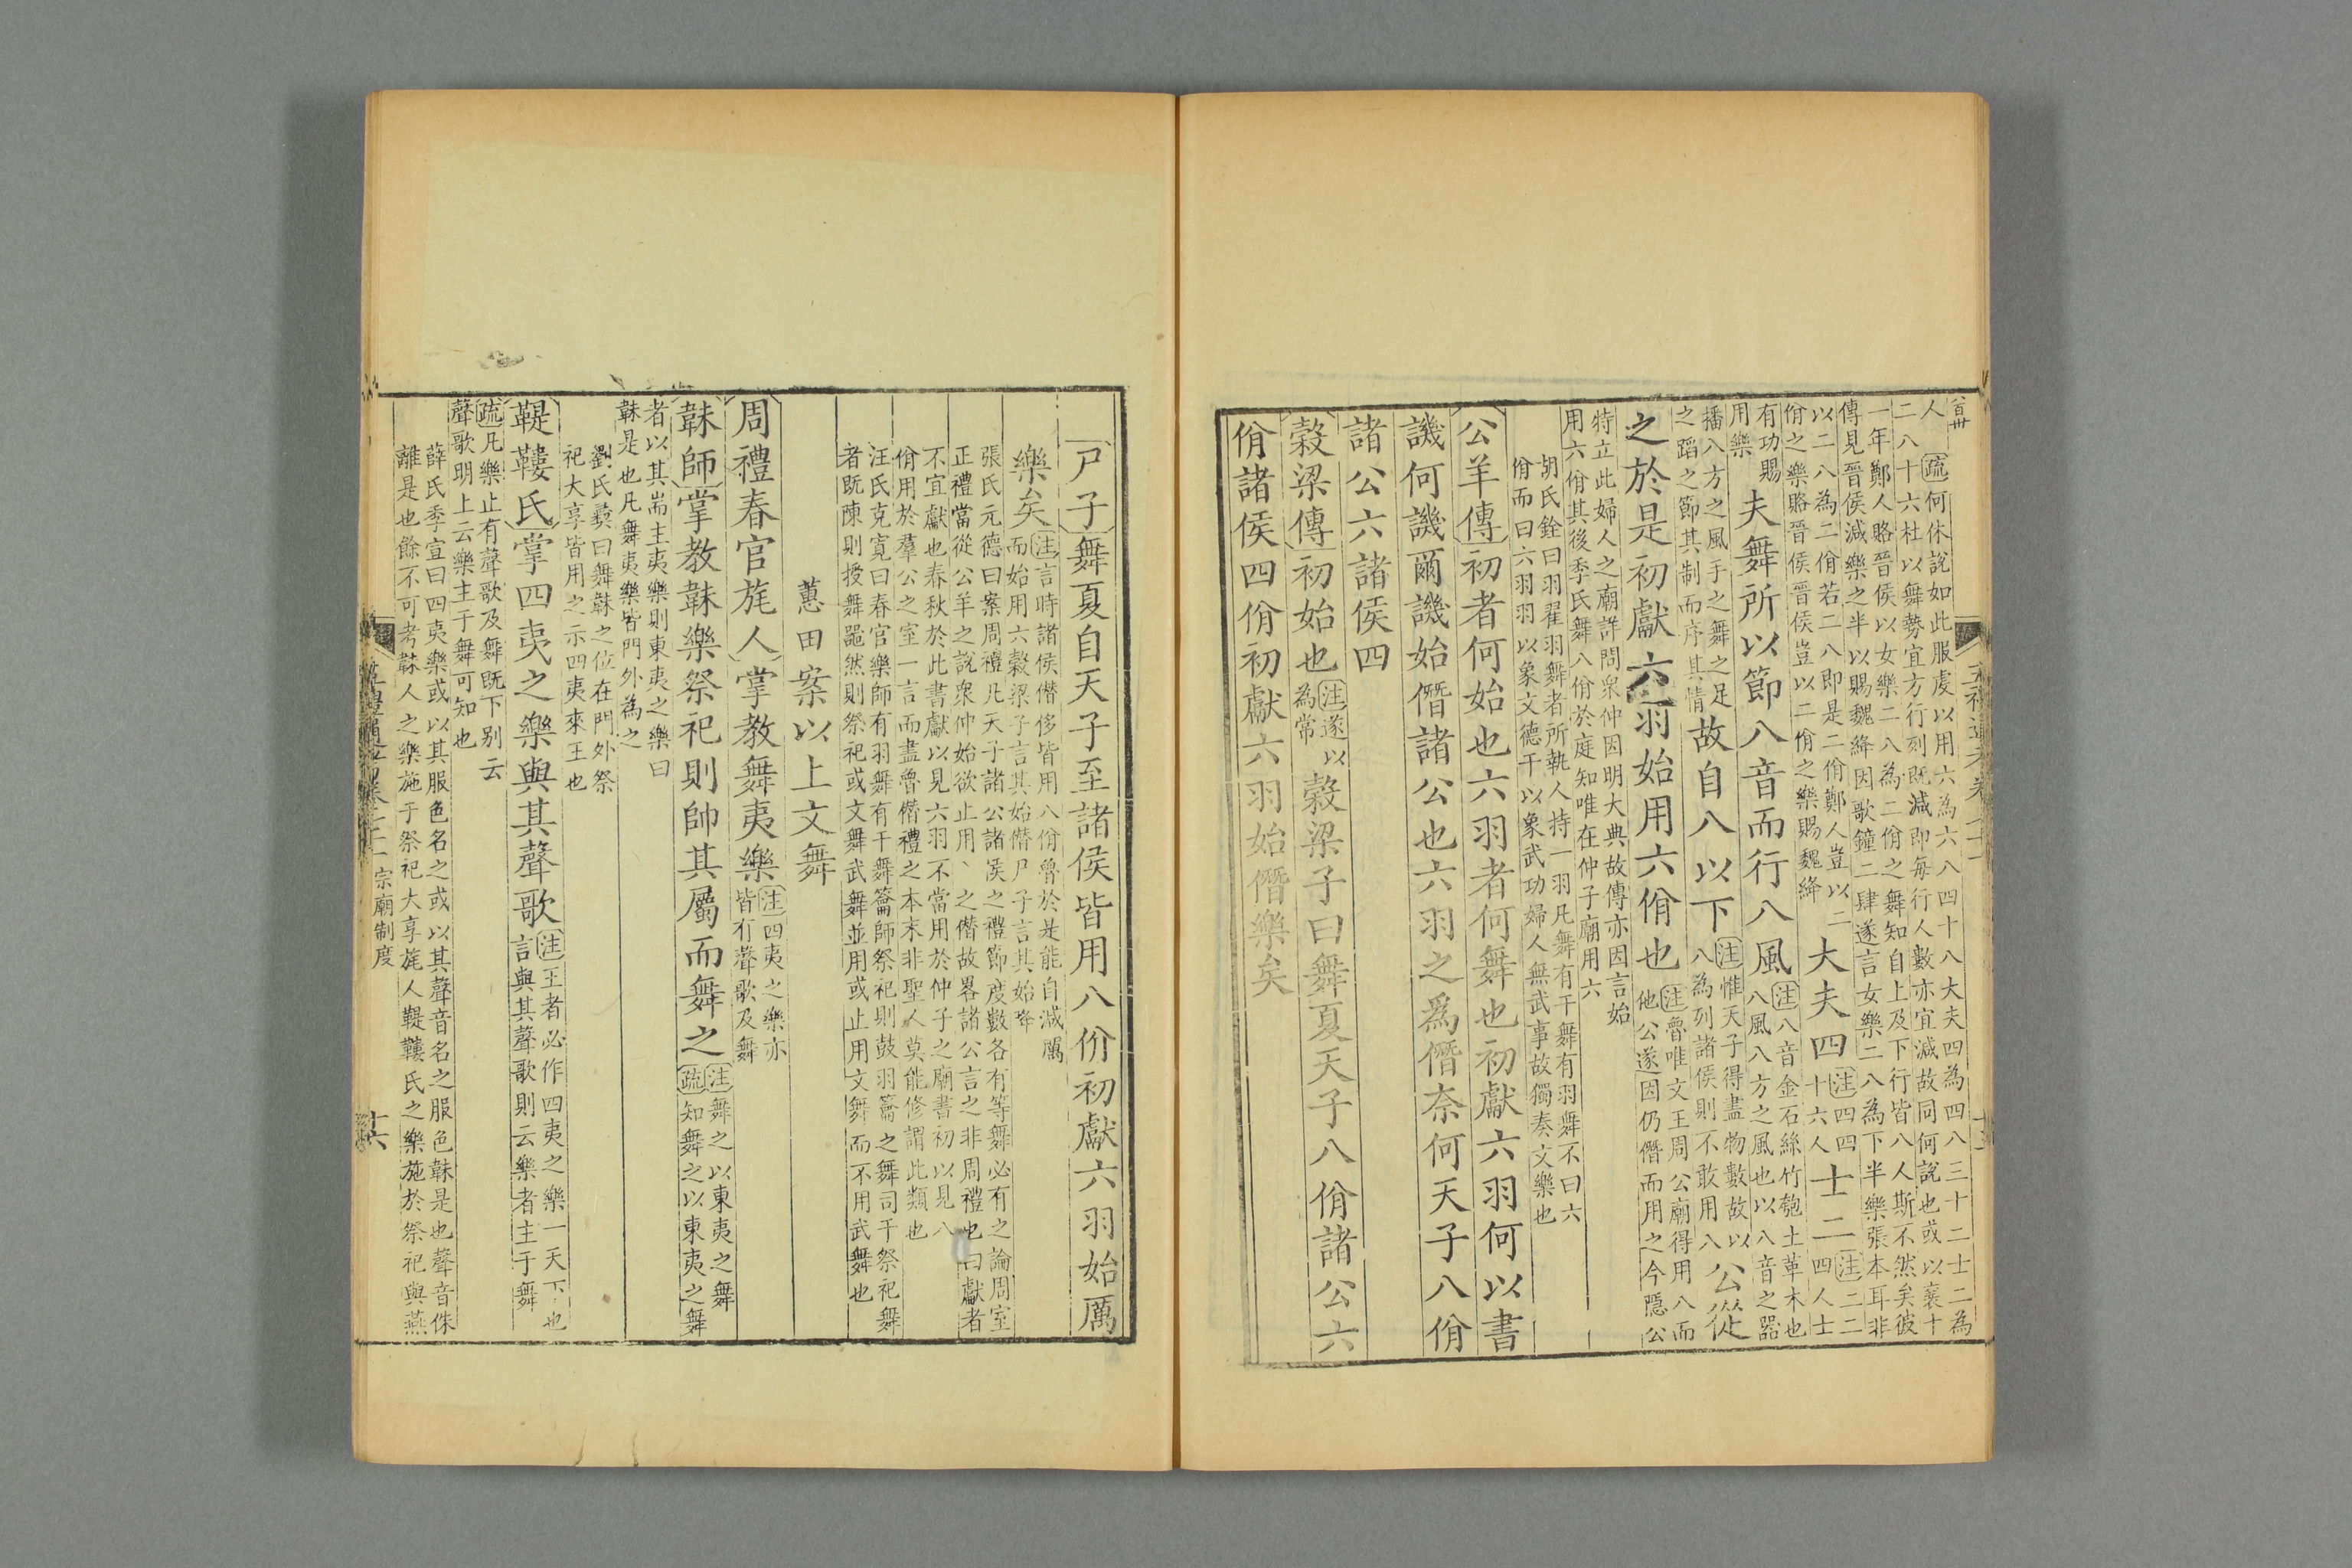 五禮通考卷七十一
人疏何休說如此服虔以用六為六八四十八大夫四為四八三十二士二為
二八十六杜以舞勢宜方行列既減即每行人數亦宜減故同何說也或以襄十
一年鄭人賂晉侯以女樂二八為二佾之舞知自上及下行皆八人斯不然矣彼
傳見晉侯減樂之半以賜魏絳因歌鐘二肆遂言女樂二八為下半樂張本耳非
以二八為二佾若二八即是二佾鄭人豈以二
佾之樂賂晉侯晉侯豈以二佾之樂賜魏絳
大夫四注四四十六人士二注二二四人士
有功賜用樂夫舞所以節八音而行八風注八音金石絲竹匏土革木也八風八方之風也以八音之器
播八方之風手之舞之足之蹈之節其制而序其情故自八以下注惟天子得盡物數故以八為列諸侯則不敢用八公從
之於是初獻六羽始用六佾也注魯唯文王周公廟得用八而他公遂因仍僭而用之今隱公
特立此婦人之廟詳問衆仲因明大典故傳亦因言始
用六佾其後季氏舞八佾於庭知唯在仲子廟用六
胡氏銓曰羽翟羽舞者所執人持一羽凡舞有干舞有羽舞不曰六
佾而曰六羽羽以象文德干以象武功婦人無武事故獨奏文樂也
公羊傳初者何始也六羽者何舞也初獻六羽何以書
譏何譏爾譏始僭諸公也六羽之爲僭奈何天子八佾
諸公六諸侯四
穀梁傳初始也注遂以為常穀梁子曰舞夏天子八佾諸公六
佾諸侯四佾初獻六羽始僭樂矣
尸子舞夏自天子至諸侯皆用八佾初獻六羽始厲
樂矣注言時諸侯僭侈皆用八佾魯於是能自減厲
而始用六穀梁子言其始僭尸子言其始降
張氏元德曰案周禮凡天子諸公諸侯之禮節度數各有等舞必有之論周室
正禮當從公羊之說衆仲始欲止用之僭故畧諸公言之非周禮也曰獻者
不宜獻也春秋於此書獻以見六羽不當用於仲子之廟書初以見八
佾用於羣公之室一言而盡魯僭禮之本末非聖人莫能修謂此類也
汪氏克寬曰春官樂師有羽舞有干舞籥師祭祀則鼓羽籥之舞司干祭祀舞
者既陳則授舞器然則祭祀或文舞武舞並用或止用文舞而不用武舞也
蕙田案以上文舞
周禮春官旄人掌教舞夷樂注四夷之樂亦皆有聲歌及舞
韎師掌教韎樂祭祀則帥其屬而舞之注舞之以東夷之舞疏知舞之以東夷之舞
者以其耑主夷樂則東夷之樂曰
韎是也凡舞夷樂皆門外為之
劉氏彝曰舞韎之位在門外祭
祀大享皆用之示四夷來王也
鞮鞻氏掌四夷之樂與其聲歌注王者必作四夷之樂一天下也言與其聲歌則云樂者主于舞
疏凡樂止有聲歌及舞既下别云
聲歌明上云樂主于舞可知也
薛氏季宣曰四夷樂或以其服色名之或以其聲音名之服色韎是也聲音侏
離是也餘不可考韎人之樂施于祭祀大享旄人鞮鞻氏之樂施於祭祀與燕
五禮通考卷七十一宗廟制度
十六